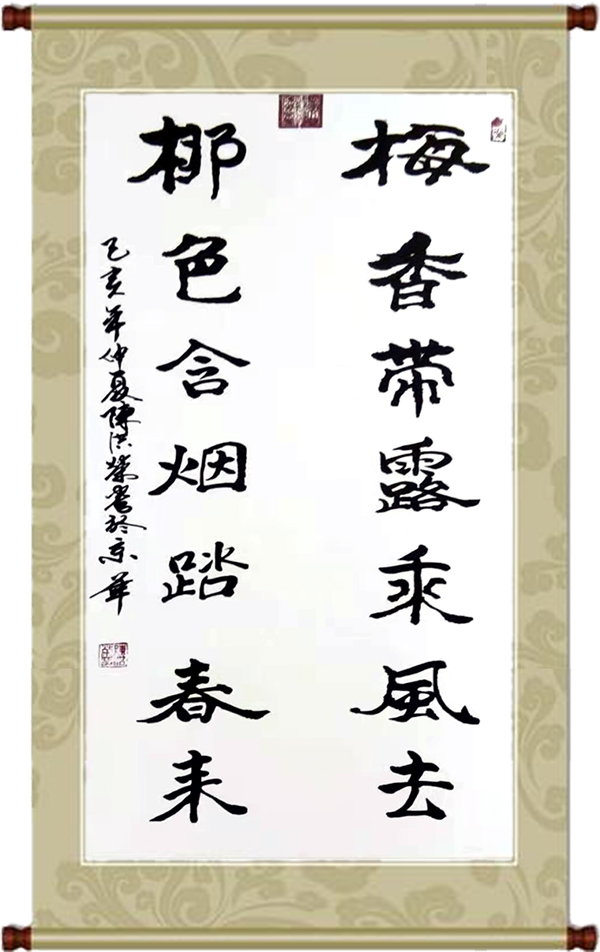 梅香带露乘風去
柳色含烟踏春来
己亥年仲夏陳洪榮書於京華